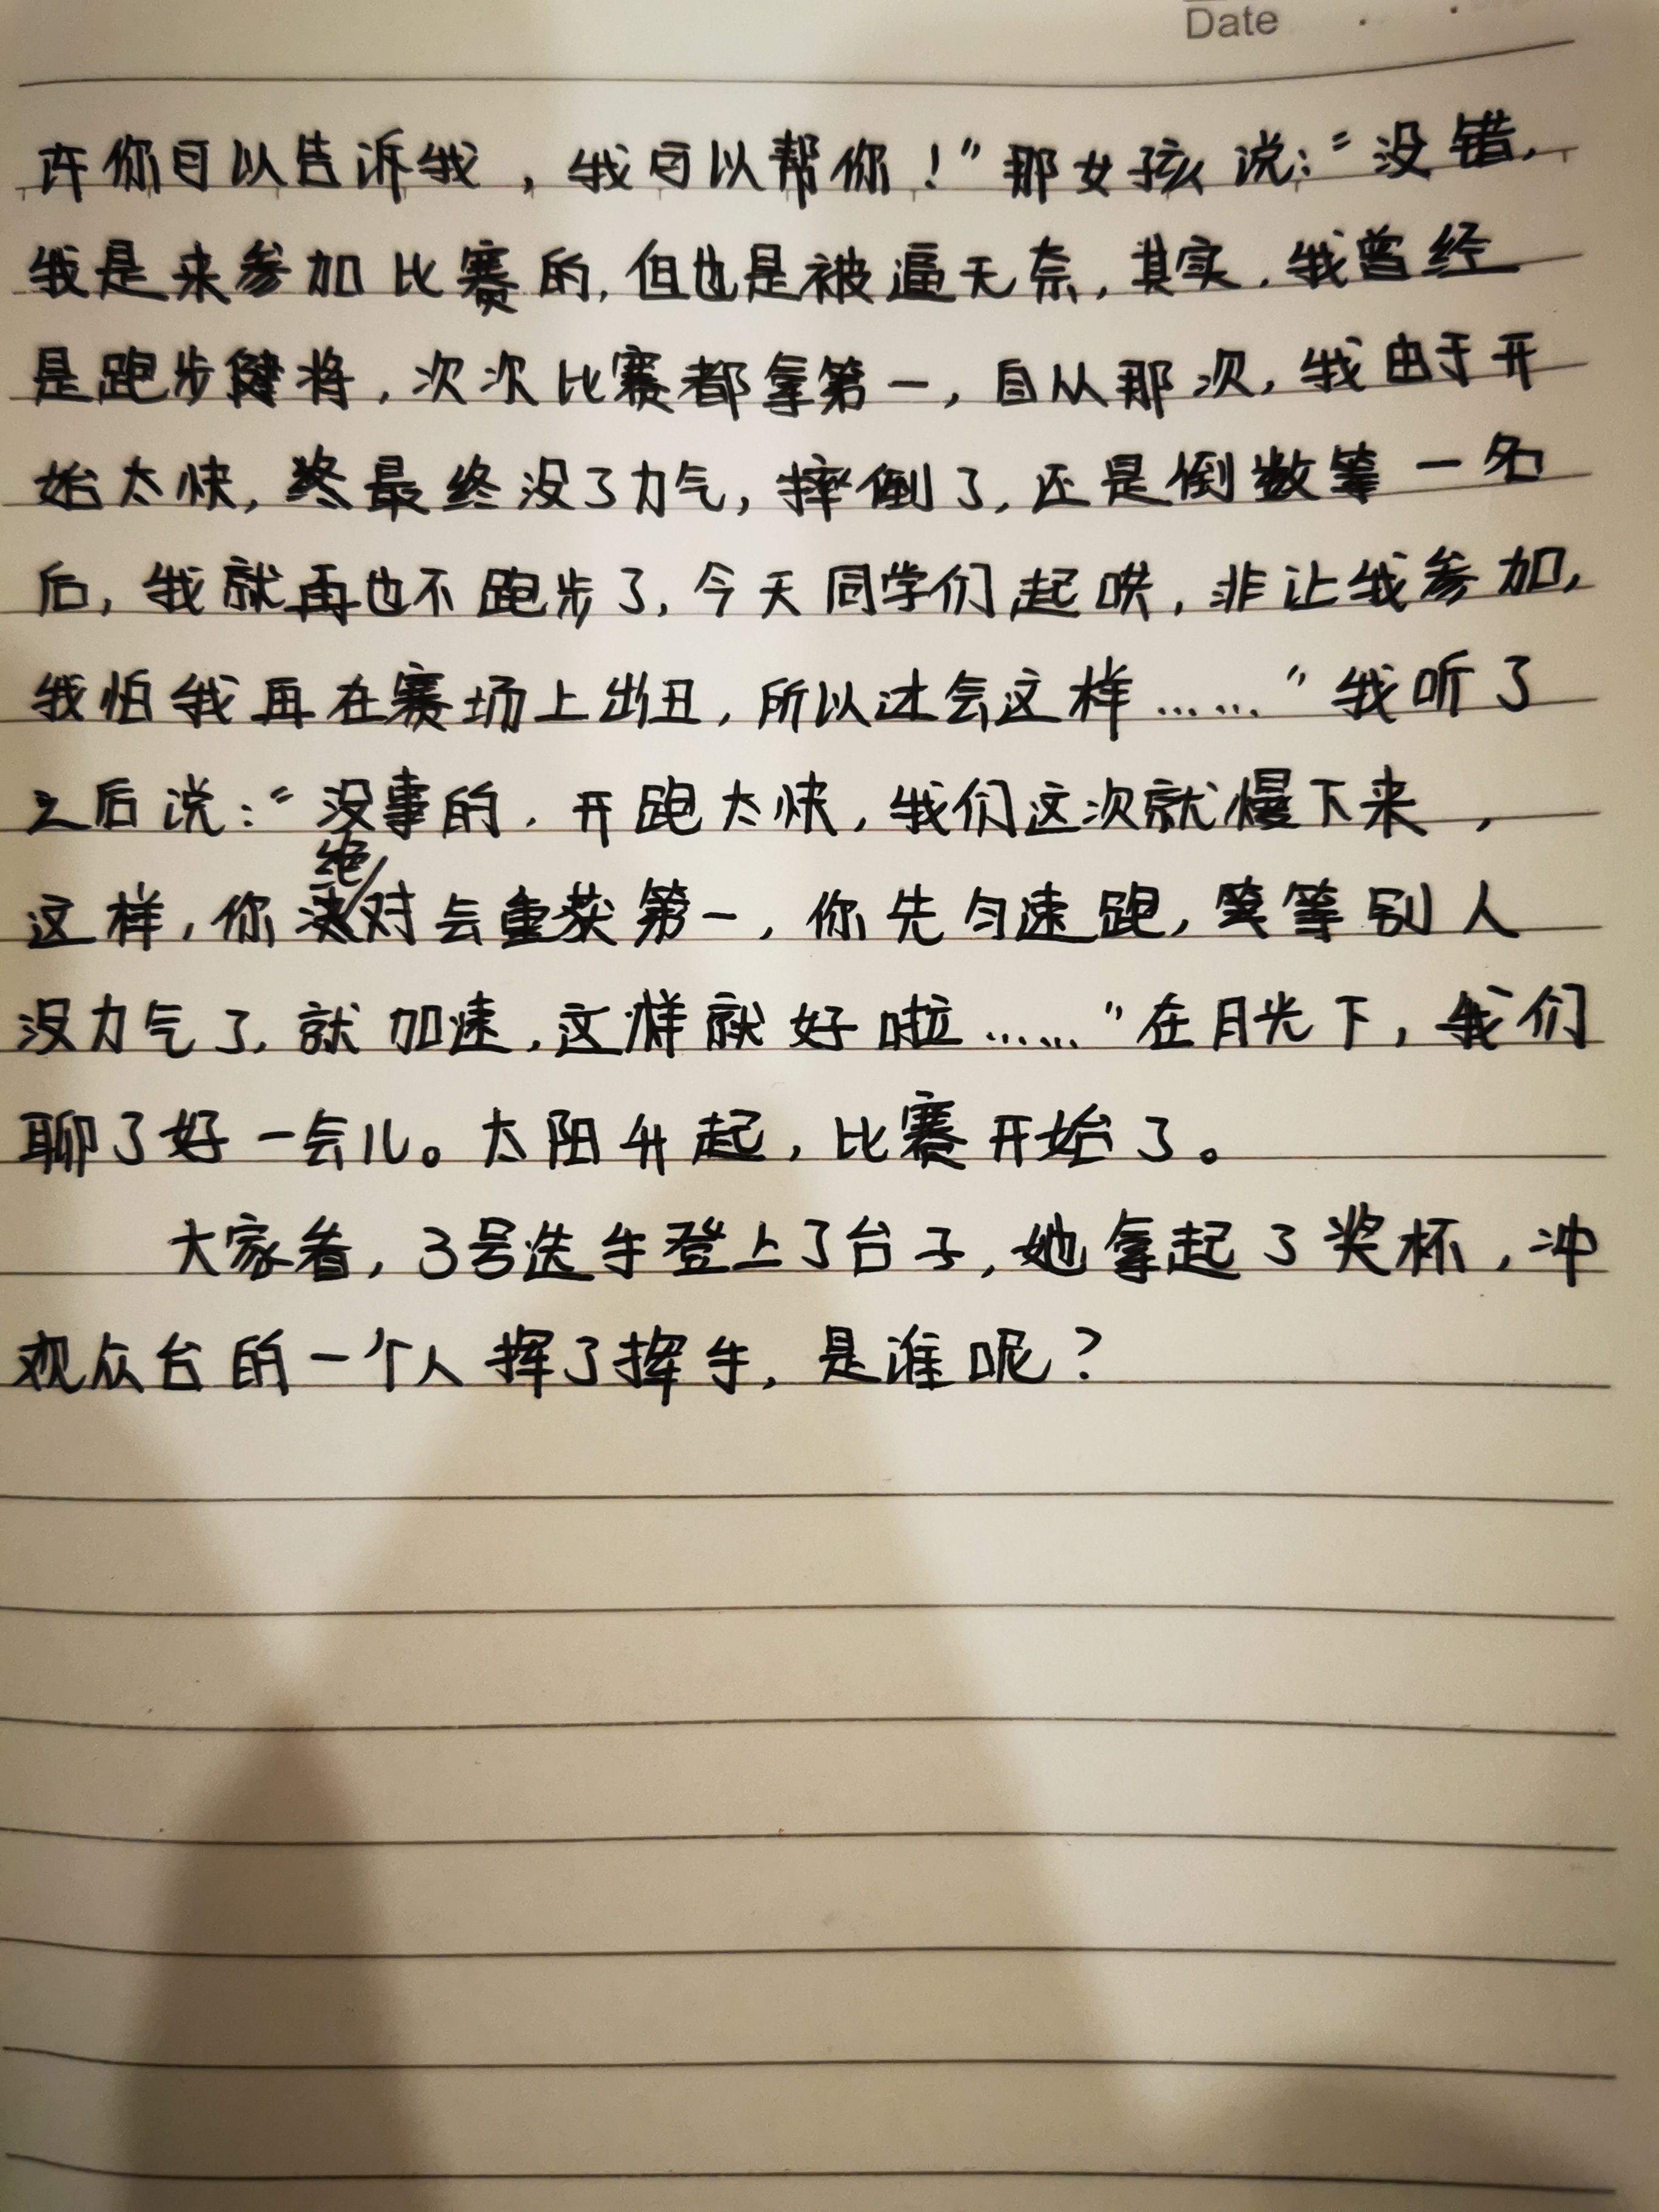 Date
许你可以告诉我，我可以帮你！”那女孩说：“没错，
我是来参加比赛的，但也是被逼无奈，其实，我曾经
是跑步健将，次次比赛都拿第一，自从那次，我由于开
始太快，最终没了力气，摔倒了，还是倒数第一名
后，我就再也不跑步了，今天同学们起哄，非让我参加，
我怕我再在赛场上出丑，所以才会这样……”我听了
之后说：“没事的，开跑太快，我们这次就慢下来，
这样，你绝对会重获第一，你先匀速跑，等别人
没力气了，就加速，这样就好啦……”在月光下，我们
聊了好一会儿。太阳升起，比赛开始了。
大家看，3号选手登上了台子，她拿起了奖杯，冲
观众台的一个人挥了挥手，是谁呢？